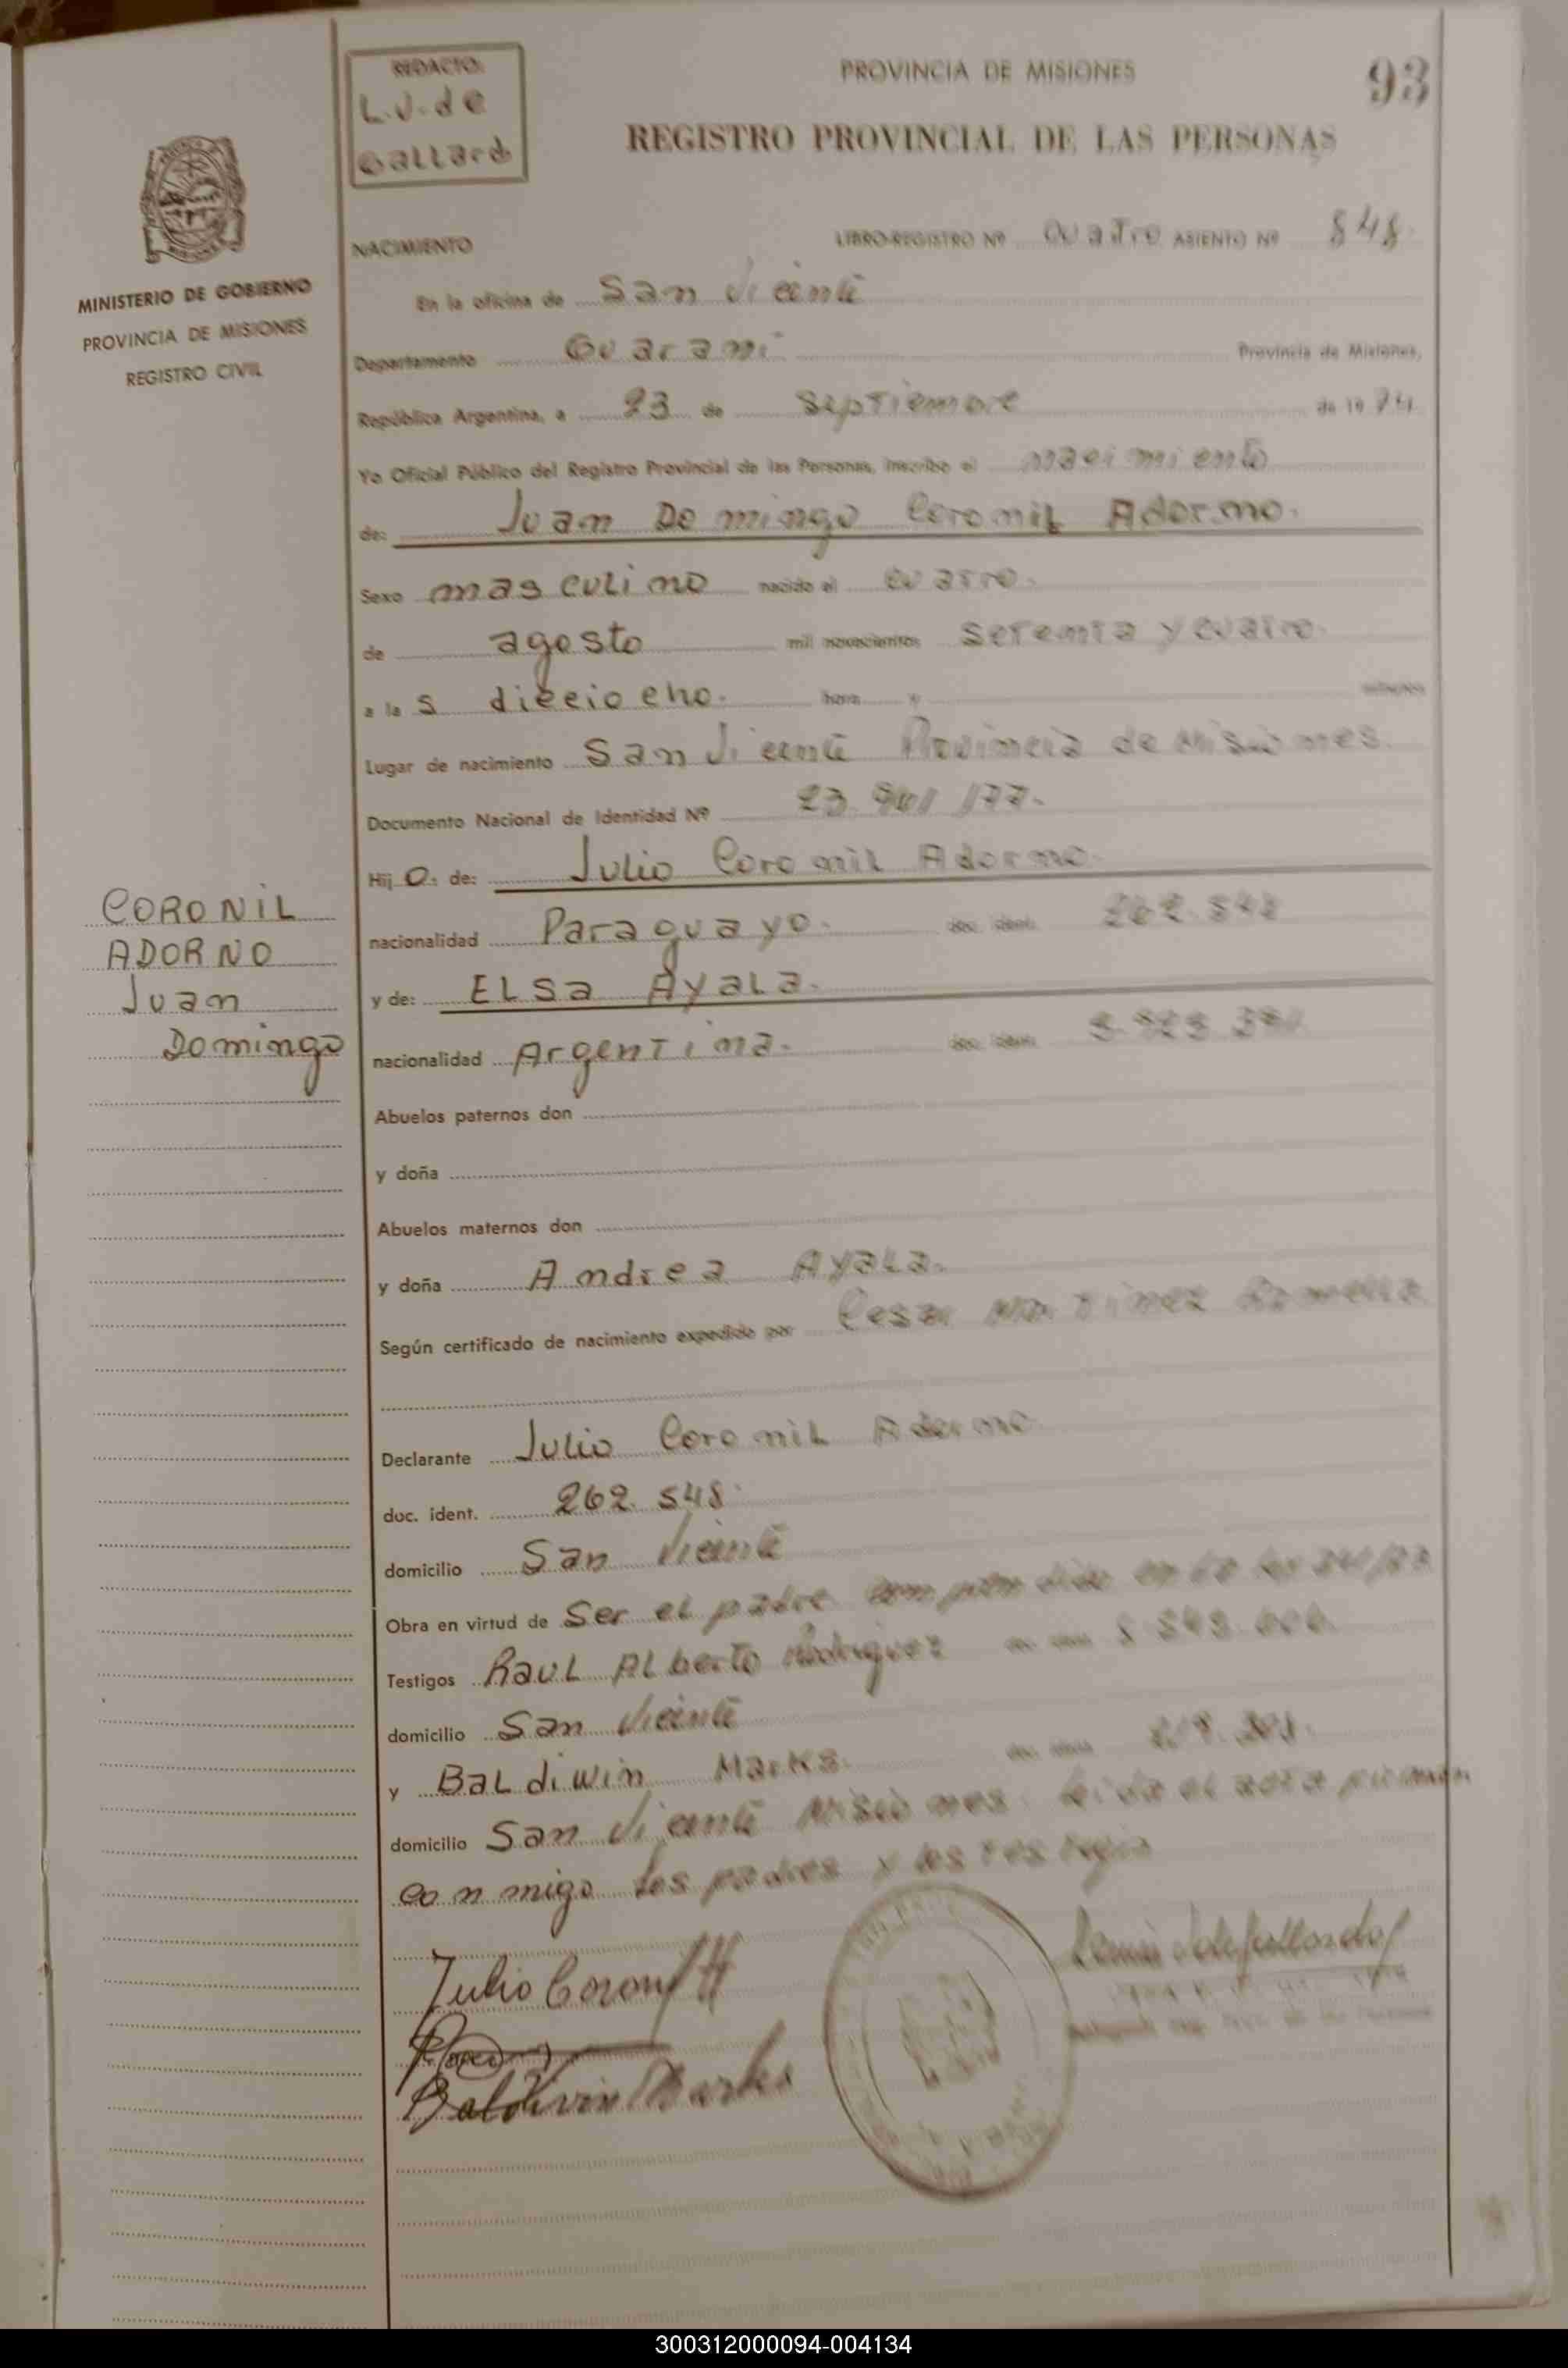 REDACTO:
L.J. de
Gallardo
PROVINCIA DE MISIONES
93
REGISTRO PROVINCIAL DE LAS PERSONAS
MINISTERIO DE GOBIERNO
PROVINCIA DE MISIONES
REGISTRO CIVIL
NACIMIENTO
LIBRO-REGISTRO Nº Cuatro ASIENTO Nº 848
En la oficina de San Vicente
Departamento Guarani Provincia de Misiones,
República Argentina, a 23 de Septiembre de 1974
Yo Oficial Público del Registro Provincial de las Personas, inscribo el nacimiento
de: Juan Domingo Coronil Adorno.
Sexo masculino nacido el cuatro.
de agosto mil novecientos setenta y cuatro.
a las dieciocho. hora y minutos
Lugar de nacimiento San Vicente Provincia de Misiones.
Documento Nacional de Identidad Nº 23
Hijo: de: Julio Coronil Adorno.
CORONIL
ADORNO
Juan
Domingo
nacionalidad Paraguayo. doc. ident. 262.548
y de: ELSa AyaLa.
nacionalidad Argentina. doc. ident.
Abuelos paternos don
y doña
Abuelos maternos don
y doña Andrea AyaLa.
Según certificado de nacimiento expedido por Cesar
Declarante Julio Coronil Adorno
doc. ident. 262.548.
domicilio San Vicente
Obra en virtud de Ser el padre
Testigos Raul Alberto Rodriguez
domicilio San Vicente
y Baldiwin Marks.
domicilio San Vicente Misiones. leida el acta firman
conmigo los padres y los testigos
Julio Coronil
Baldiwin Marks
300312000094-004134